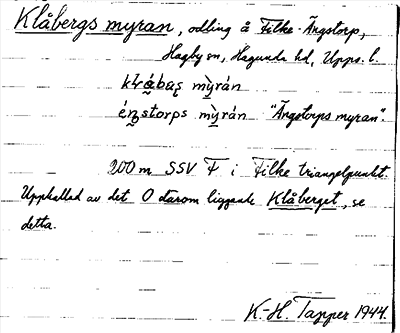 Klåbergs myran, odling å Filke-Ängstorp,
Hagby sn, Hagunda hd, Upps. l.
klåbas myrán
énstorps myrán "Ängstorps myran".
200 m SSV F i Filke triangelpunkt.
Uppkallad av det O darom liggande Klåberget, se
detta.
K.-H. Tapper 1944.